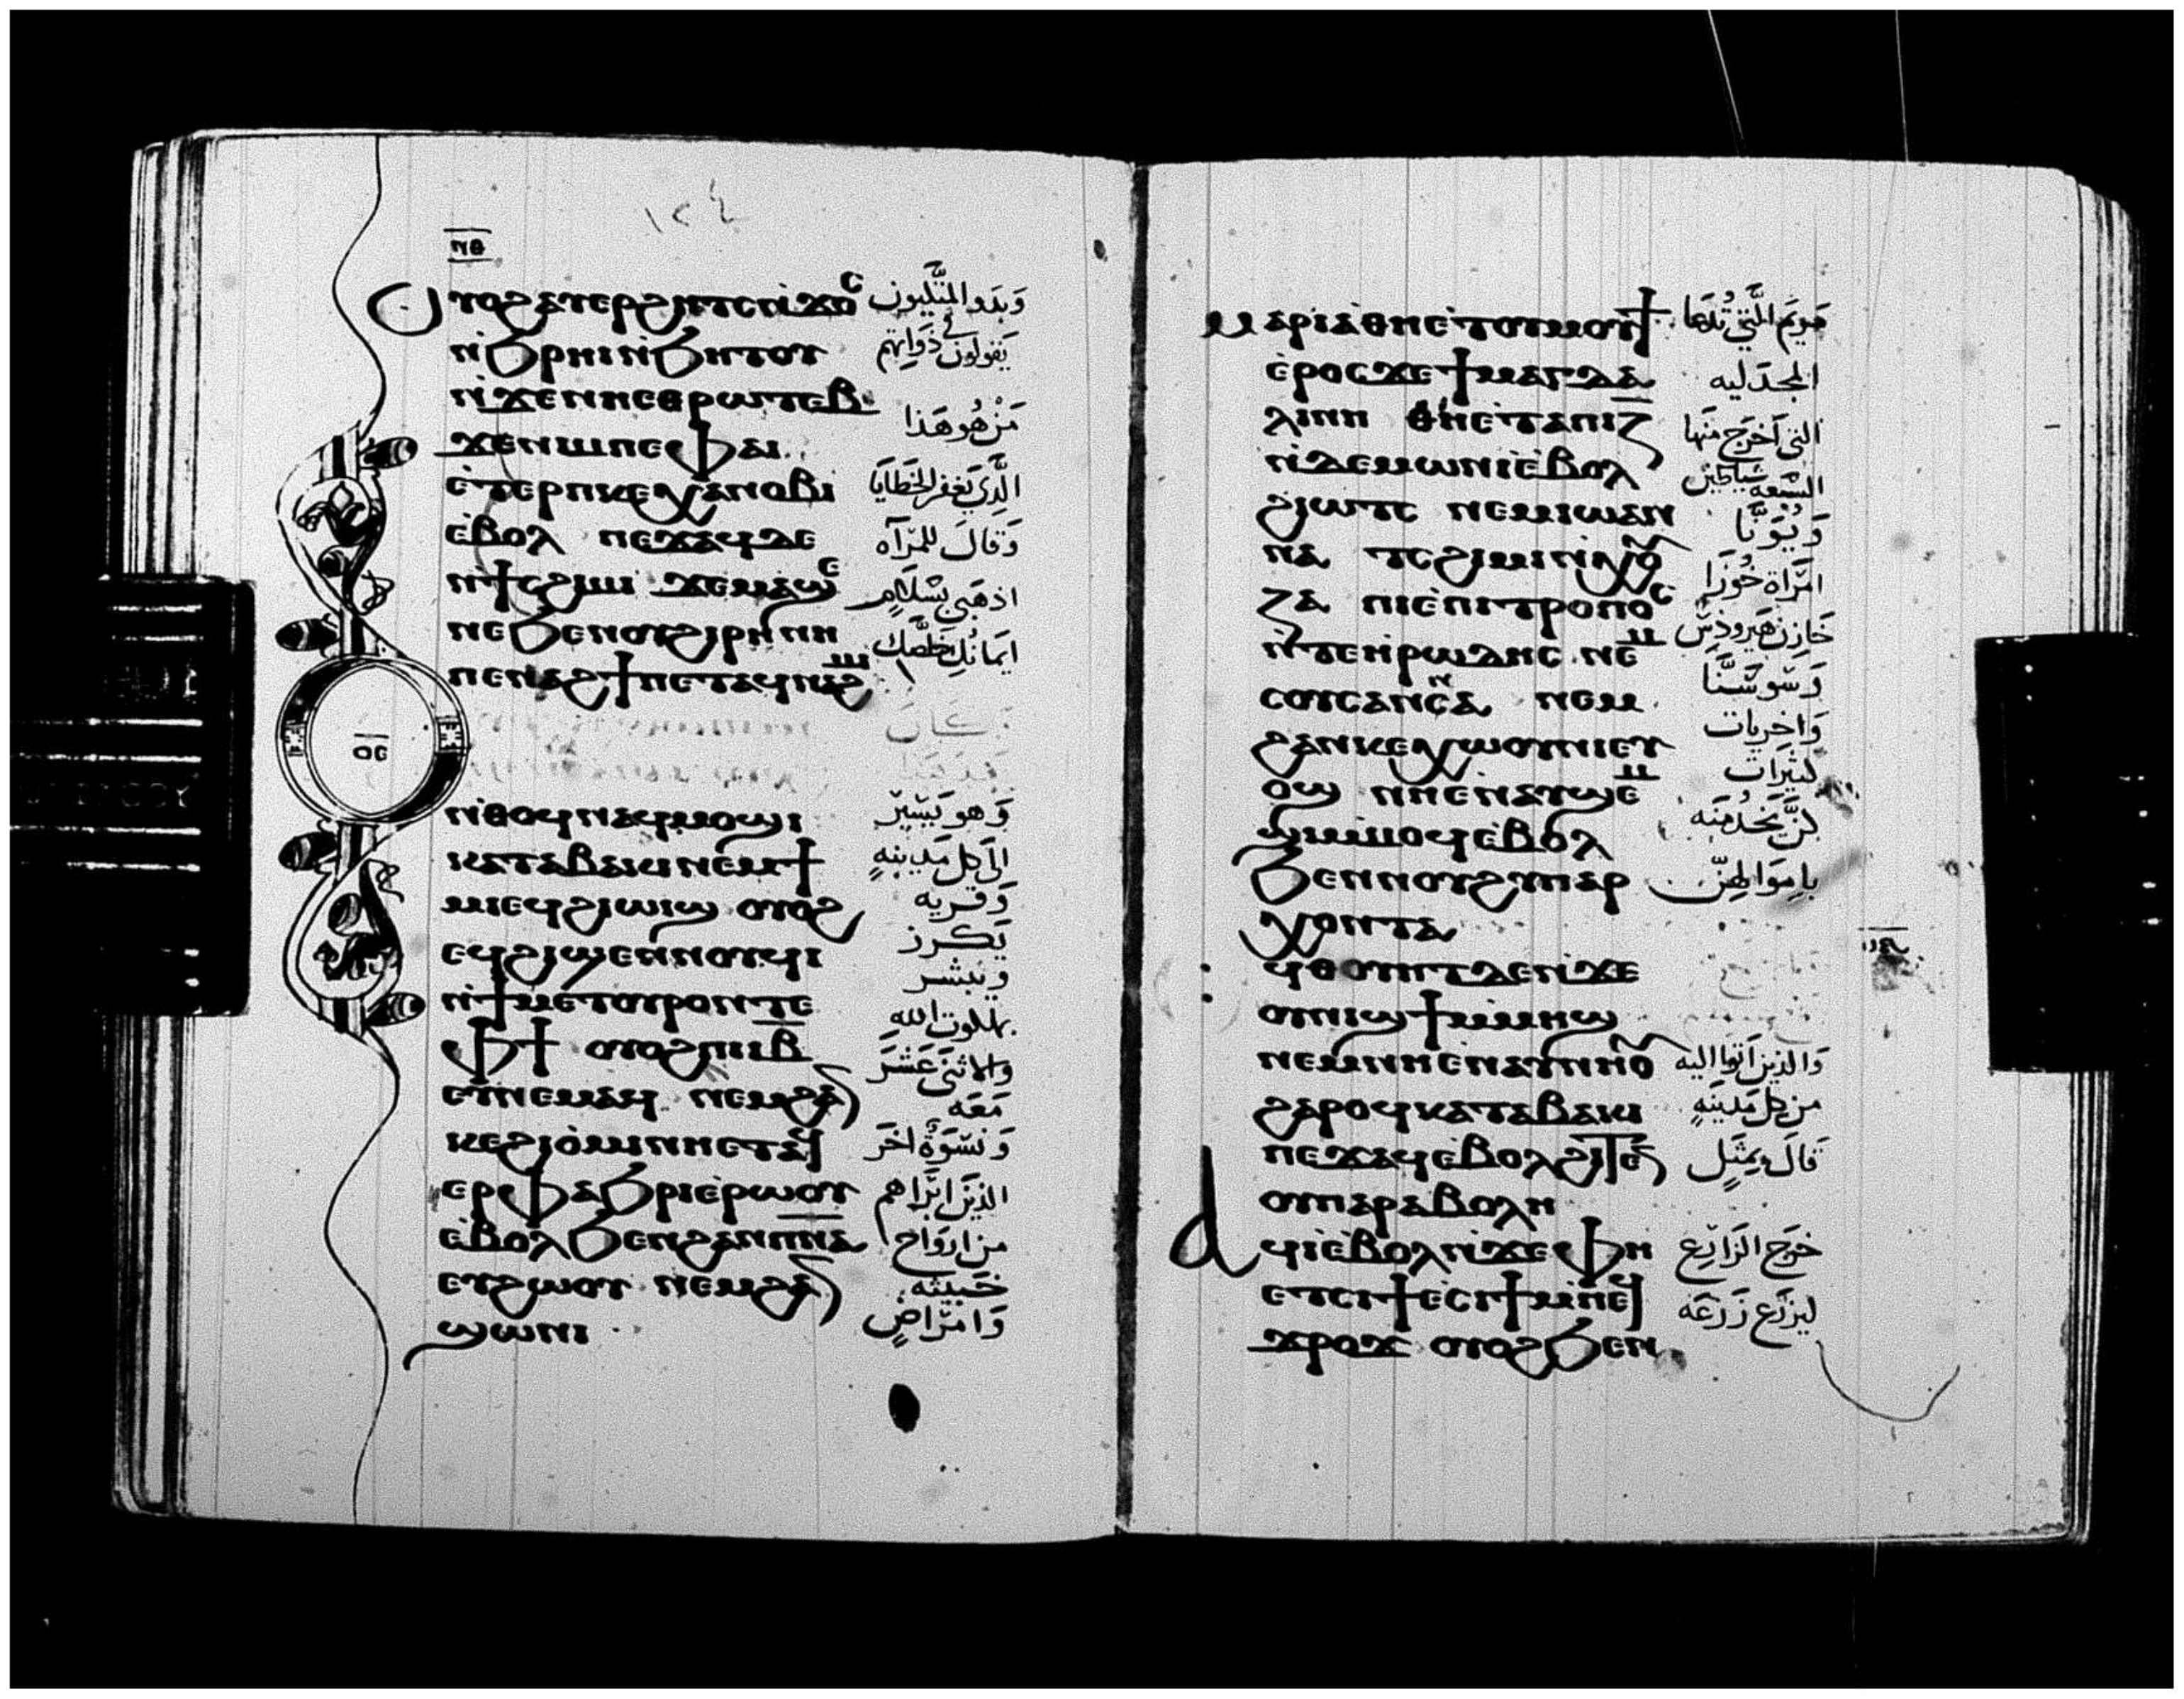 ١٢٤
ⲡⲑ
Ⲟⲩⲟϩ ⲁⲩⲉⲣϩⲏⲧⲥ ⲛ̇ϫⲟⲥ وَبَدَو المتَّكيون
ⲛ̇ϧⲣⲏⲓ ⲛ̇ϧⲏⲧⲟⲩ يَقولون في ذَوَاتهم
ⲛ̇ϫⲉⲛⲏⲉⲑⲣⲱⲧⲉⲃ
ϫⲉⲛⲓⲙ ⲡⲉ ⲫⲁⲓ مَنْ هُو هَذا
ⲉ̇ⲧⲉⲣⲡⲕⲉⲭⲁⲛⲟⲃⲓ الَّذِي يَغفر الخَطَايَا
ⲉ̇ⲃⲟⲗ ⲡⲉϫⲁϥ ⲇⲉ وَقالَ للمرآه
ⲛ̇ϯⲥϩⲓⲙⲓ ϫⲉⲙⲁϣⲉ اذهَبي بسَّلَامٍ
ⲛⲉ ϧⲉⲛⲟⲩϩⲓⲣⲏⲛⲏ ايمَانُكِ خَلصَّك
ⲡⲉⲛⲁϩϯ ⲡⲉⲧⲁϥⲛⲁϩⲙ
ⲟⲋ
ⲛ̇ⲑⲟϥ ⲛⲁϥⲙⲟϣⲓ وَهو يَسِير
ⲕⲁⲧⲁⲃⲁⲕⲓ ⲛⲉⲙϯ الَى كل مَدينهٍ
ⲙⲓ ⲉϥϩⲓⲱⲓϣ ⲟⲩⲟϩ وَقريه
ⲉϥϩⲓϣⲉⲛⲛⲟⲩϥⲓ يَكرز
ⲛ̇ϯⲙⲉⲧⲟⲩⲣⲟ ⲛⲧⲉ ويبشر
ⲫϯ ⲟⲩⲟϩ ⲡⲓⲓⲃ بملكوت الله
ⲉⲩⲛⲉⲙⲁϥ ⲛⲉⲙϩⲁⲛ والاثنَى عَشَرَ مَعَه
ⲕⲉϩⲓⲟ̇ⲙⲓ ⲛⲏⲉⲧⲁϥ وَنسْوَةٌ اخَر
ⲉⲣⲫⲁϧⲣⲓ ⲉ̇ⲣⲱⲟⲩ الذينَ ابرَاهم
ⲉ̇ⲃⲟⲗϧⲉⲛϩⲁⲛⲡⲛⲁ من اروَاح
ⲉⲩϩⲱⲟⲩ ⲛⲉⲙϩⲁⲛ خبيثه
ϣⲱⲛⲓ وَامرَاضٍ
ⲙⲁⲣⲓⲁ ⲑⲏⲉ̇ⲧⲟⲩⲙⲟⲩϯ مَريَم الَّتي تُدعَا
ⲉ̇ⲣⲟⲥ ϫⲉϯⲙⲁⲅⲇⲁ المجدَليه
ⲗⲓⲛⲏ ⲑⲏⲉ̇ⲧⲁⲡⲓⲍ التي اَخرَج منهَا
ⲛ̇ⲇⲉⲙⲱⲛ ⲓ̀ⲉ̇ⲃⲟⲗ السَّبعَه شيَاطين
ϩⲓⲱⲧⲥ ⲛⲉⲙⲓⲱⲁⲛ وَيُوَنَّا
ⲛⲁ ⲧⲥϩⲓⲙⲓ ⲛ̇ⲭⲟⲩ امرَاة خُوزَا
ⲍⲁ ⲡⲓⲉ̇ⲡⲓⲧⲣⲟⲡⲟⲥ خَازِن هَيرودسَ
ⲛ̇ⲧⲉⲏⲣⲱⲇⲏⲥ ⲛⲉⲙ وَسوسَنَّا
ⲥⲟⲩⲥⲁⲛⲛⲁ ⲛⲉⲙ وَاخريات
ϩⲁⲛⲕⲉⲭⲱⲟⲩⲛⲓ ⲉⲩ كثيرَات
ⲟϣ ⲛⲏⲉ̇ⲛⲁⲩϣⲉⲙ كنَّ يَخدُمنَه
ϣⲓ ⲙ̇ⲙⲟϥ ⲉ̇ⲃⲟⲗ
ϧⲉⲛⲛⲟⲩϩⲩⲡⲁⲣ بامَوَالهنّ
ⲭⲟⲛⲧⲁ
ϥⲑⲟⲩⲏⲧ ⲇⲉ ⲛ̇ϫⲉ
ⲟⲩⲛⲓϣϯ ⲙ̇ⲙⲏϣ
ⲛⲉⲙⲛⲏⲉ̇ⲛⲁⲩⲛⲏⲟⲩ وَالذين اتَوا اليه
ϩⲁⲣⲟϥ ⲕⲁⲧⲁⲃⲁⲕⲓ من كل مَدينَهٍ
ⲡⲉϫⲁϥ ⲉ̇ⲃⲟⲗϩⲓⲧⲉⲛ قالَ بمثَلٍ
ⲟⲩⲡⲁⲣⲁⲃⲟⲗⲏ
Ⲁϥⲓ̀ⲉ̇ⲃⲟⲗ ⲛ̇ϫⲉⲫⲏ خرَج الزَارِع
ⲉⲧⲥⲓϯ ⲉ̇ⲥⲓϯ ⲙ̇ⲡⲉϥ ليزرَع زَرْعَه
ϫⲣⲟϫ ⲟⲩⲟϩ ϧⲉⲛ